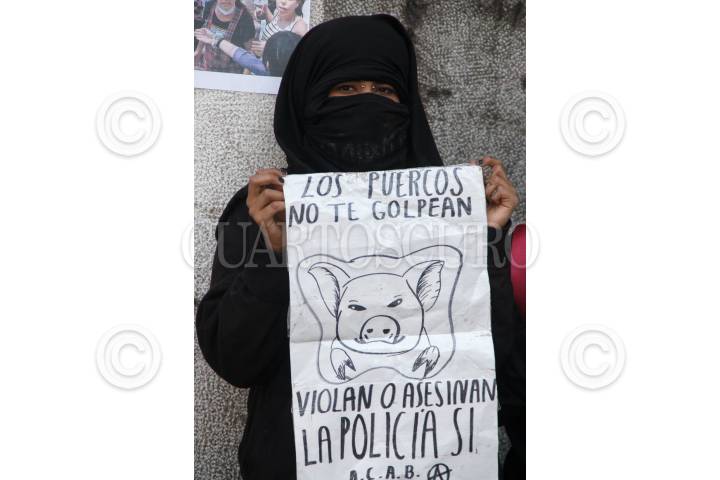 LOS PUERCOS
NO TE GOLPEAN
CUARTOSCURO
VIOLAN O ASESINAN
LA POLICÍA SI
A.C.A.B. Ⓐ